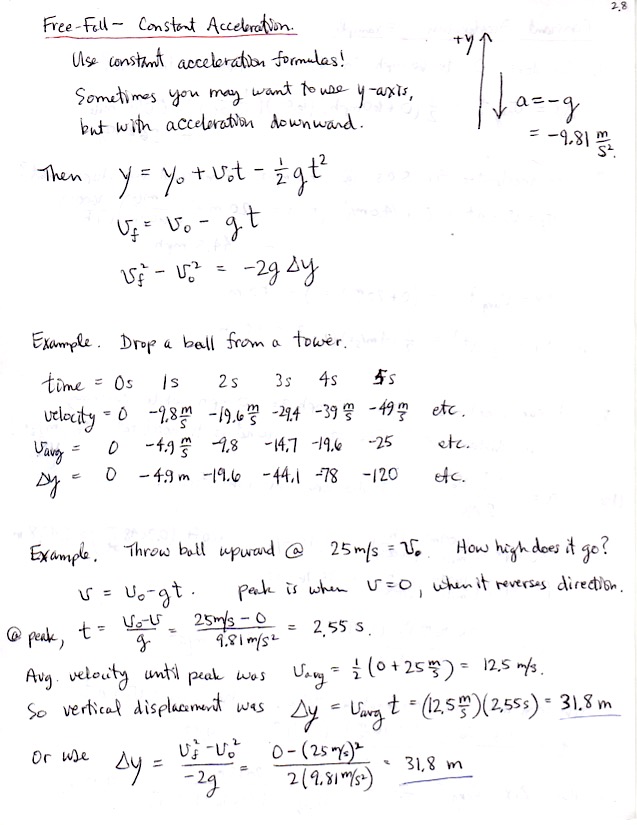 2.8
Free-Fall - Constant Acceleration.
Use constant acceleration formulas!
Sometimes you may want to use y-axis,
but with acceleration downward.
+y
a = -g
= -9.81 m/s².
Then y = y₀ + v₀t - ½gt²
v_f = v₀ - gt
v_f² - v₀² = -2gΔy
Example. Drop a ball from a tower.
time = 0s 1s 2s 3s 4s 5s
velocity = 0 -9.8 m/s -19.6 m/s -29.4 -39 m/s -49 m/s etc.
v_avg = 0 -4.9 m/s -9.8 -14.7 -19.6 -25 etc.
Δy = 0 -4.9 m -19.6 -44.1 -78 -120 etc.
Example. Throw ball upward @ 25 m/s = v₀. How high does it go?
v = v₀ - gt. peak is when v=0, when it reverses direction.
@ peak, t = (v₀-v)/g = (25 m/s - 0)/(9.81 m/s²) = 2.55 s.
Avg. velocity until peak was v_avg = ½(0 + 25 m/s) = 12.5 m/s.
So vertical displacement was Δy = v_avg t = (12.5 m/s)(2.55 s) = 31.8 m
Or use Δy = (v_f² - v₀²)/(-2g) = (0 - (25 m/s)²)/(2(9.81 m/s²)) = 31.8 m